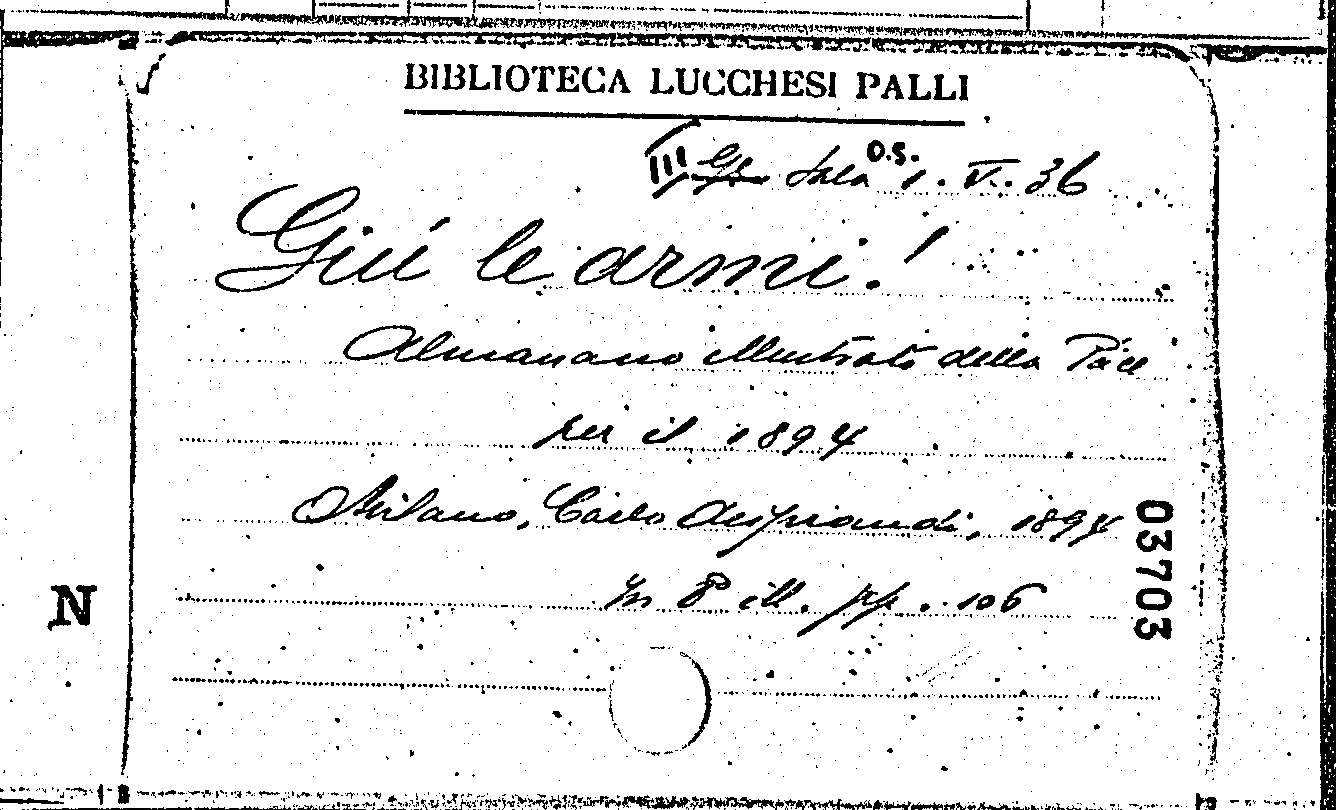 BIBLIOTECA LUCCHESI PALLI
III Sala O.S. 1. V. 36
Giú le armi!
Almanacco illustrato della Pace
per il 1894
Milano, Carlo Aliprandi, 1894
In 8° ill. pp. 106
03703
N